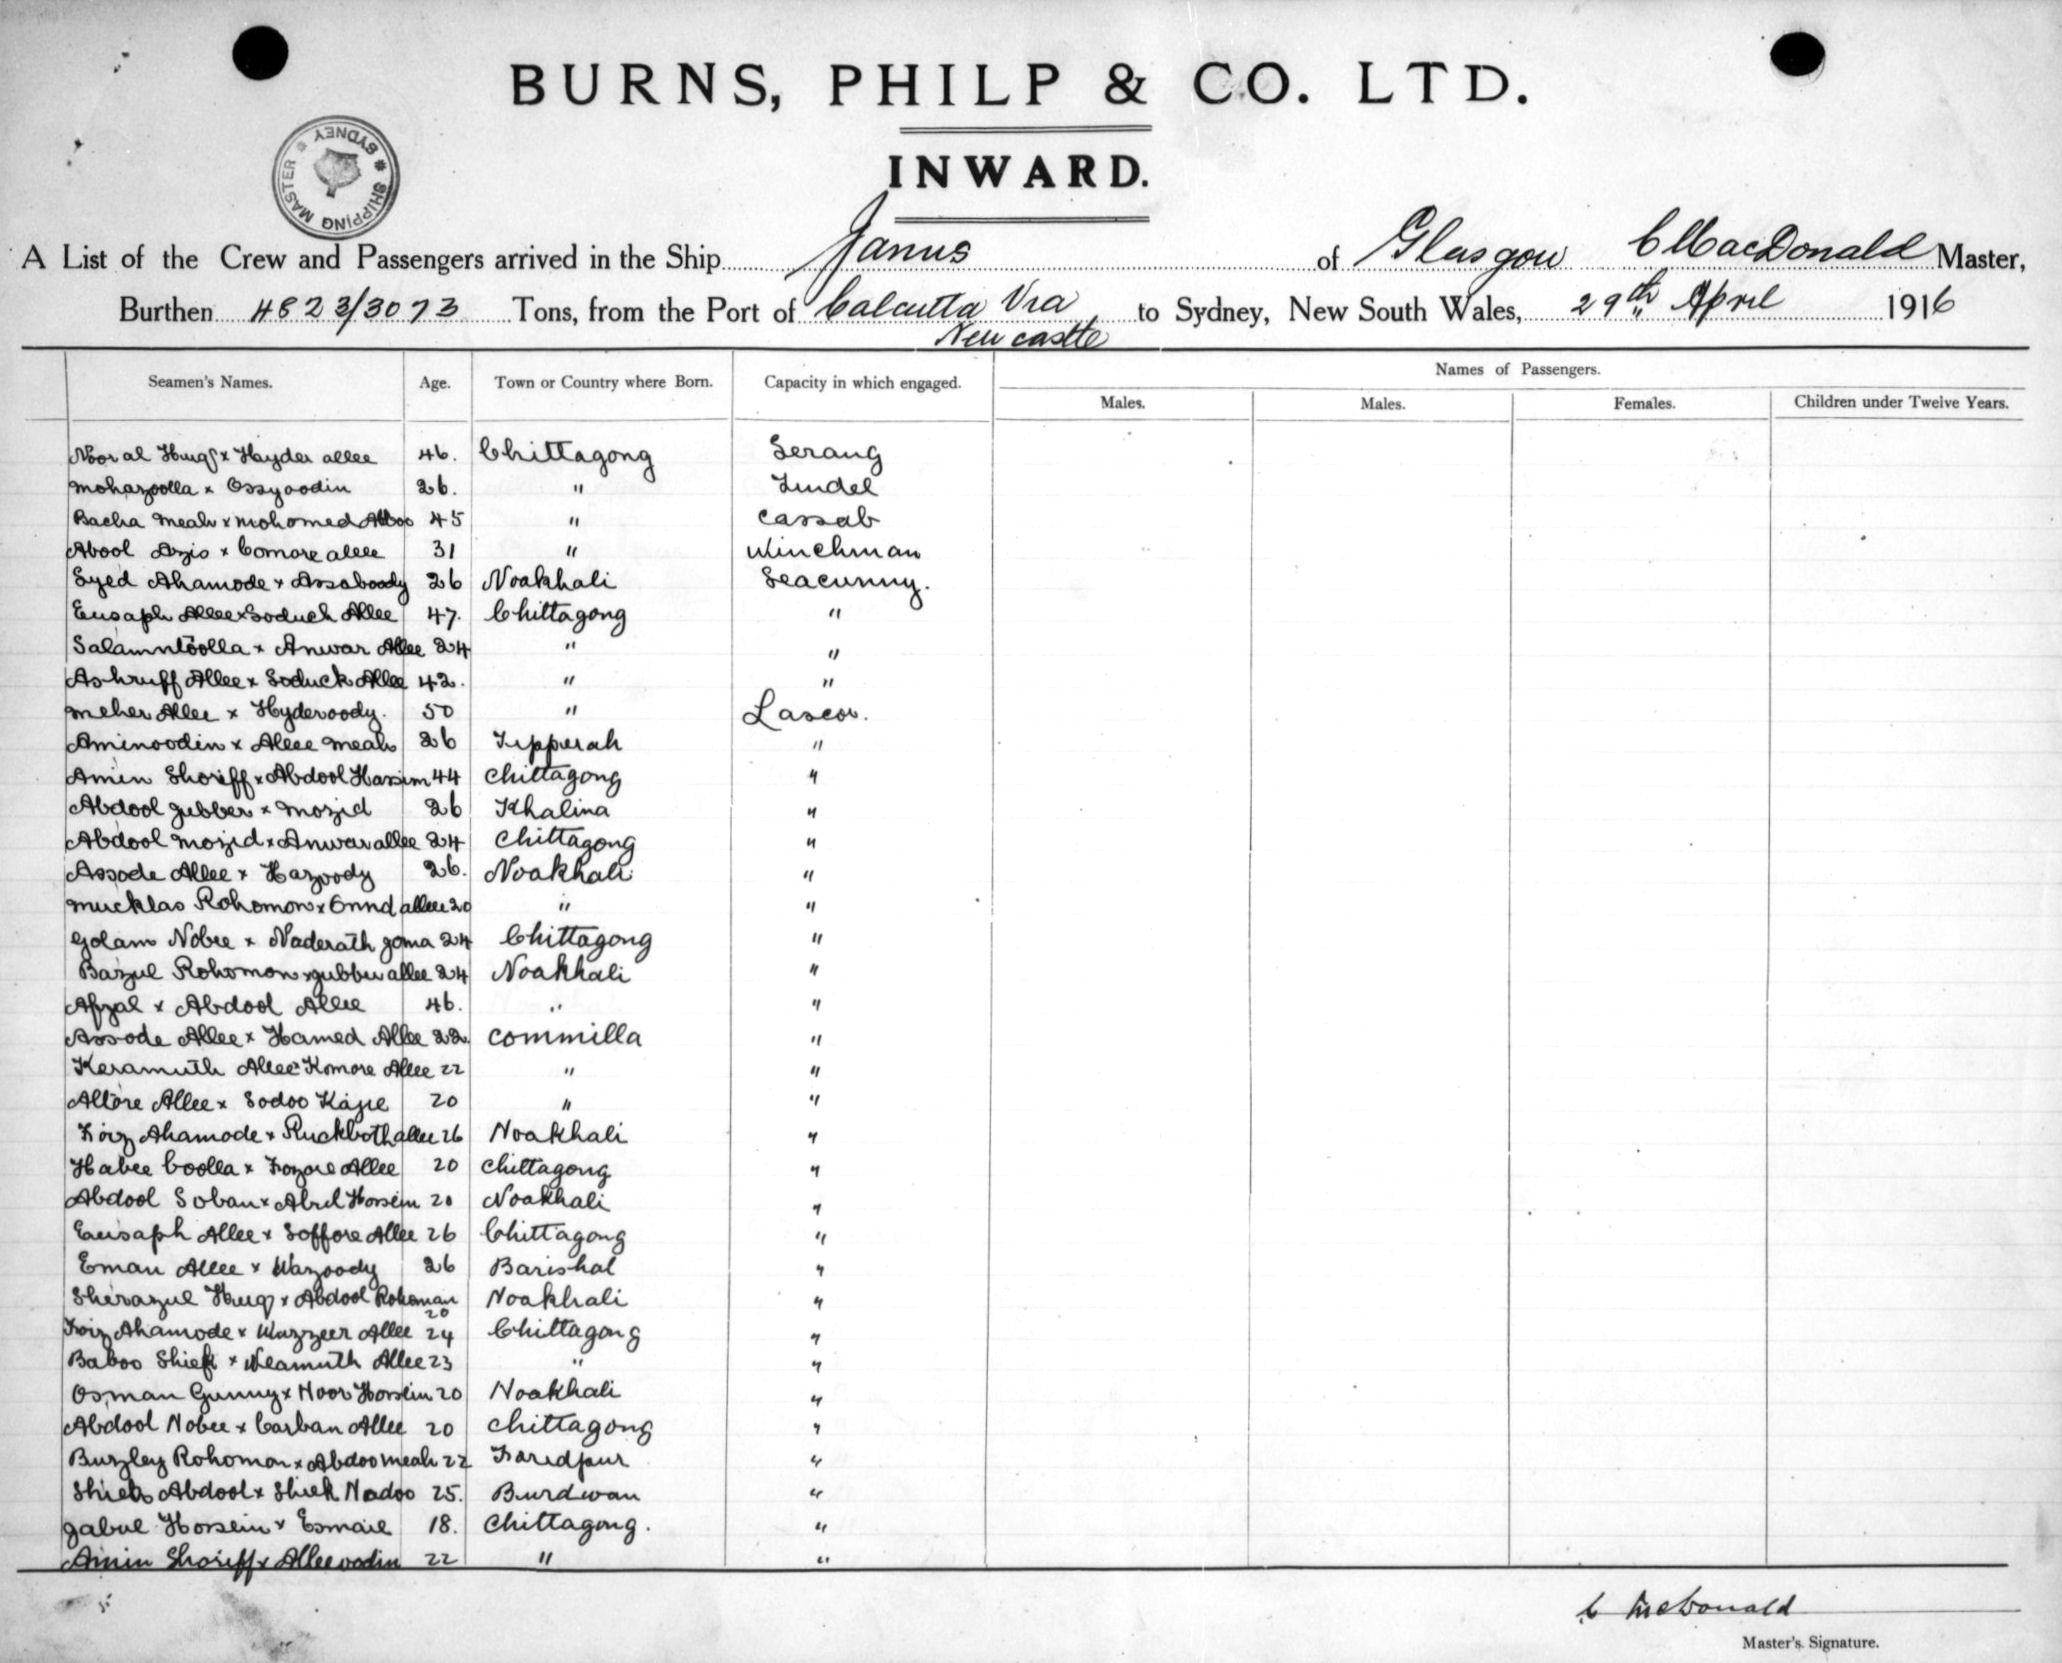 BURNS, PHILP & CO. LTD.
SHIPPING MASTER * SYDNEY *
INWARD.
A List of the Crew and Passengers arrived in the Ship Janus of Glasgow C MacDonald Master,
Burthen 4823/3073 Tons, from the Port of Calcutta Via Newcastle to Sydney, New South Wales, 29th April 1916
Names of Passengers.
Seamen's Names. Age. Town or Country where Born. Capacity in which engaged.
Males. Males. Females. Children under Twelve Years.
Noor al Huq x Hyder allee 46. Chittagong Serang
Mohazoolla x Ossyoodin 26. " Tindel
Bacha Meah x Mohomed Abboo 45 " Cassab
Abool Azis x Comore allee 31 " Winchman
Syed Ahamode x Assaboody 26 Noakhali Seacunny.
Eusaph Allee x Soduck Allee 47. Chittagong "
Salamntoolla x Anwar Allee 24 " "
Ashruff Allee x Soduck Allee 42. " "
Meher Allee x Hyderoody. 50 " Lascar.
Aminoodin x Allee Meah 26 Tipperah "
Amin Shoriff x Abdool Hassim 44 Chittagong "
Abdool Jubber x Mozid 26 Khalina "
Abdool Mozid x Anwar allee 24 Chittagong "
Assode Allee x Hazoody 26. Noakhali "
Mucklas Rohomon x Onnd allee 20 " "
Golam Nobee x Naderath Joma 24 Chittagong "
Bazul Rohomon x Jubber allee 24 Noakhali "
Afzal x Abdool Allee 46. " "
Assode Allee x Hamed Allee 22. Commilla "
Keramuth Allee x Komore Allee 22 " "
Altore Allee x Sodoo Kazie 20 " "
Foiz Ahamode x Ruckboth allee 26 Noakhali "
Habee Coolla x Fozore Allee 20 Chittagong "
Abdool Soban x Abul Hossein 20 Noakhali "
Eusaph Allee x Soffore Allee 26 Chittagong "
Eman Allee x Wazoody 26 Barishal "
Sherazul Huq x Abdool Rohoman 20 Noakhali "
Foiz Ahamode x Wazzeer Allee 24 Chittagong "
Baboo Shiek x Neamuth Allee 23 " "
Osman Gunny x Noor Hossein 20 Noakhali "
Abdool Nobee x Carban Allee 20 Chittagong "
Buzley Rohomon x Abdoo Meah 22 Faridpur "
Shiek Abdool x Shiek Nadoo 25. Burdwan "
Jabul Hossein x Esmail 18. Chittagong. "
Amin Shoriff x Alleeoodin 22 " "
C McDonald
Master's Signature.